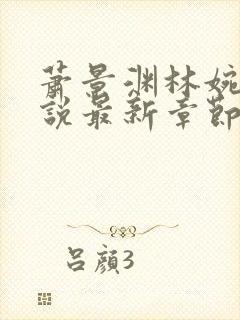 蕭景渊林婉
說最新章節
吕顏3